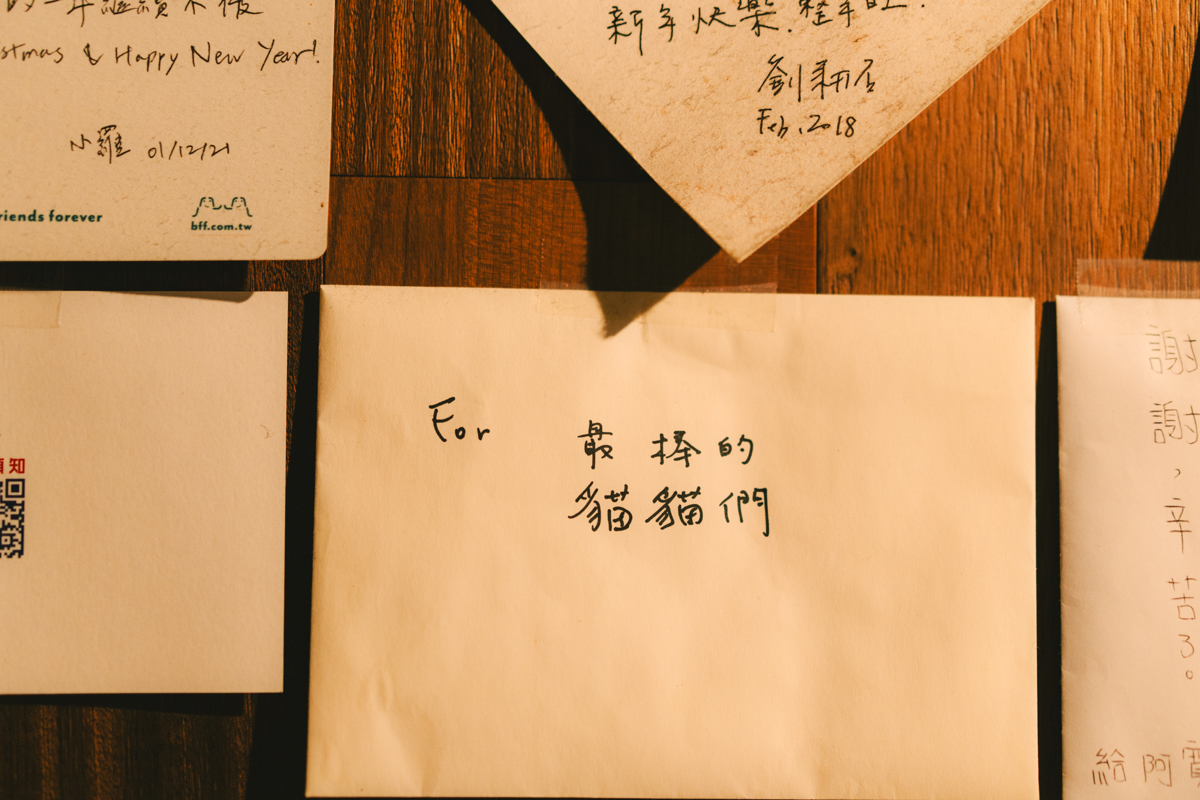 的一年繼續不
stmas & Happy New Year!
小羅 01/12/21
riends forever
bff.com.tw
新年快樂.整年旺.
劉
Feb. 2018
須知
For 最棒的
貓貓們
謝
謝
,
辛
苦
了
。
給阿